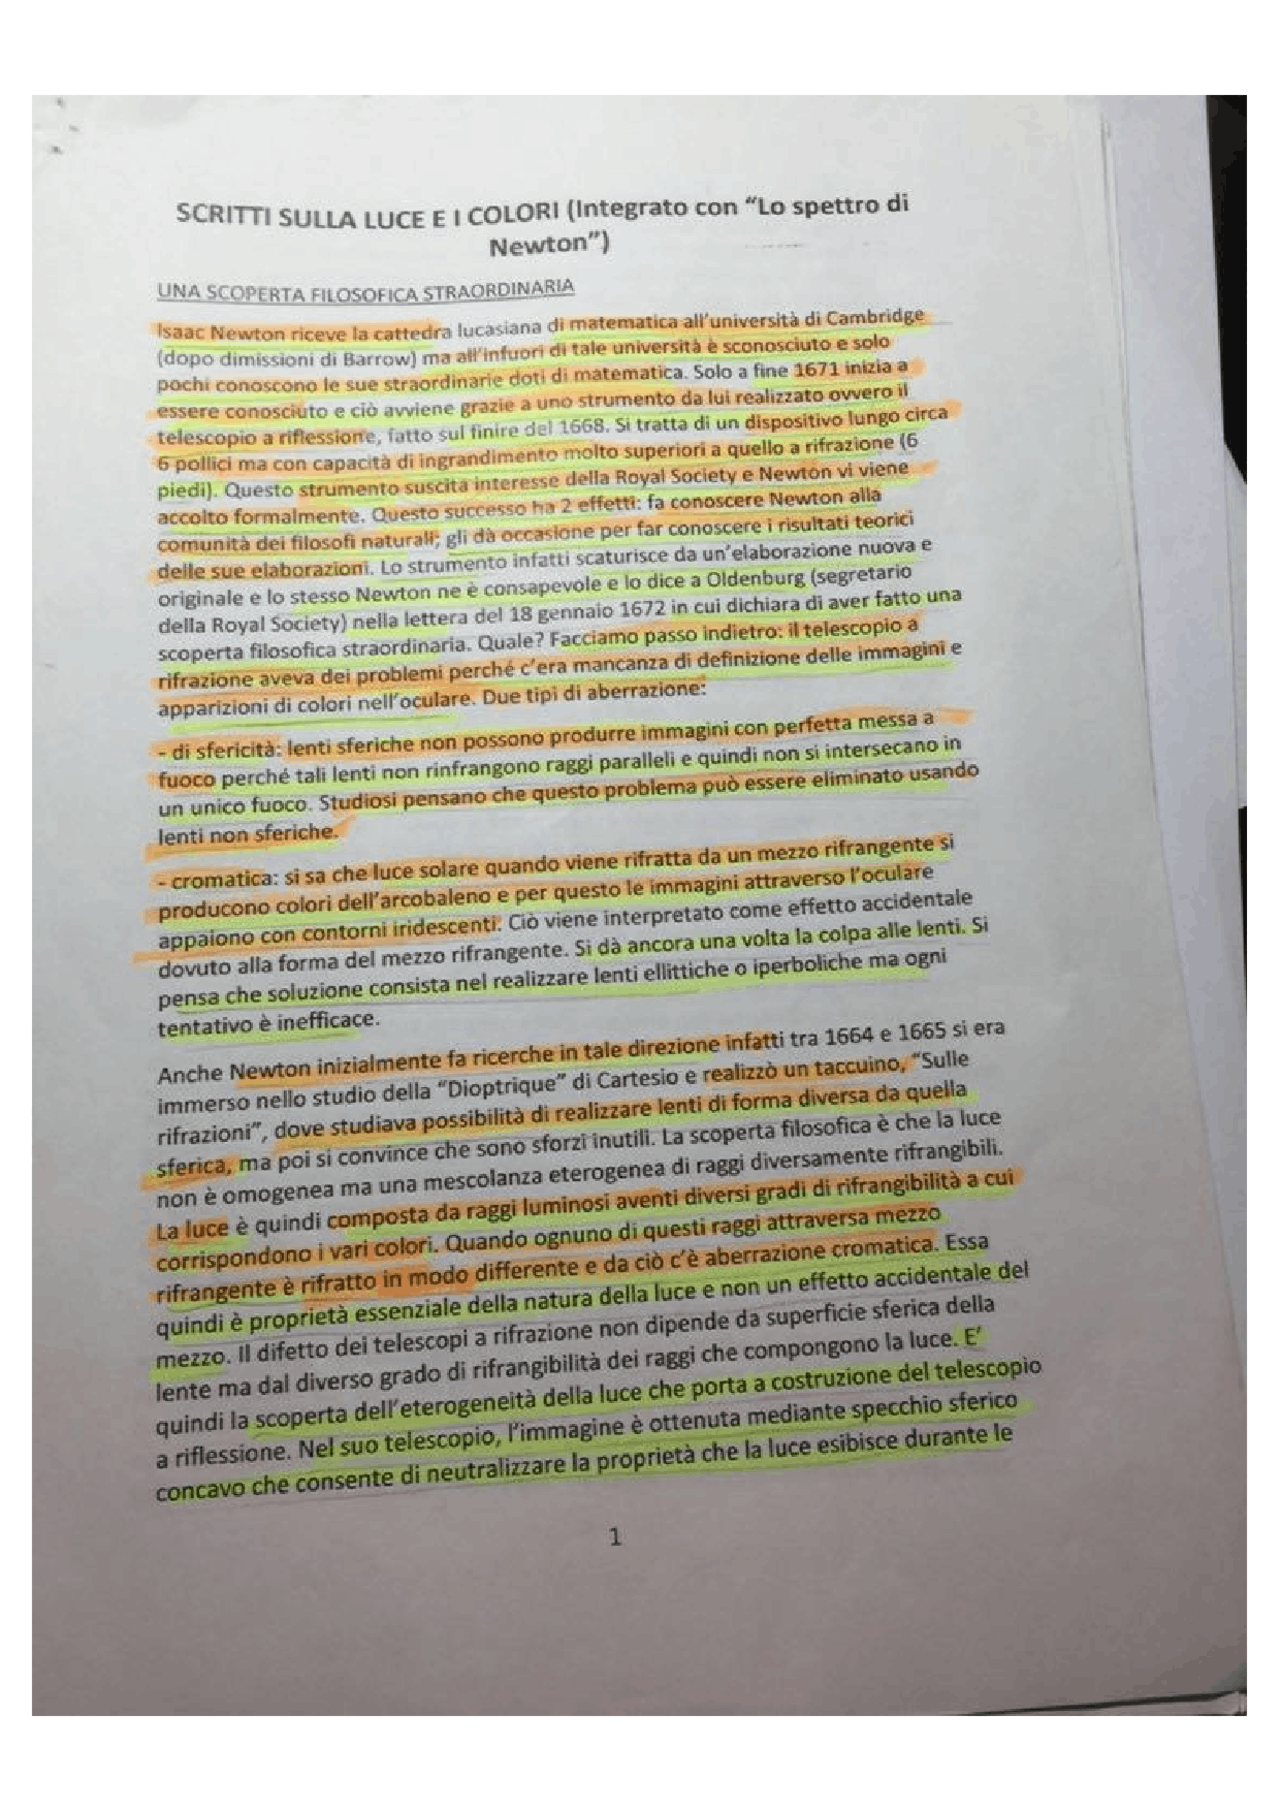 SCRITTI SULLA LUCE E I COLORI (Integrato con "Lo spettro di
Newton")
UNA SCOPERTA FILOSOFICA STRAORDINARIA
Isaac Newton riceve la cattedra lucasiana di matematica all'università di Cambridge
(dopo dimissioni di Barrow) ma all'infuori di tale università è sconosciuto e solo
pochi conoscono le sue straordinarie doti di matematica. Solo a fine 1671 inizia a
essere conosciuto e ciò avviene grazie a uno strumento da lui realizzato ovvero il
telescopio a riflessione, fatto sul finire del 1668. Si tratta di un dispositivo lungo circa
6 pollici ma con capacità di ingrandimento molto superiori a quello a rifrazione (6
piedi). Questo strumento suscita interesse della Royal Society e Newton vi viene
accolto formalmente. Questo successo ha 2 effetti: fa conoscere Newton alla
comunità dei filosofi naturali; gli dà occasione per far conoscere i risultati teorici
delle sue elaborazioni. Lo strumento infatti scaturisce da un'elaborazione nuova e
originale e lo stesso Newton ne è consapevole e lo dice a Oldenburg (segretario
della Royal Society) nella lettera del 18 gennaio 1672 in cui dichiara di aver fatto una
scoperta filosofica straordinaria. Quale? Facciamo passo indietro: il telescopio a
rifrazione aveva dei problemi perché c'era mancanza di definizione delle immagini e
apparizioni di colori nell'oculare. Due tipi di aberrazione:
- di sfericità: lenti sferiche non possono produrre immagini con perfetta messa a
fuoco perché tali lenti non rinfrangono raggi paralleli e quindi non si intersecano in
un unico fuoco. Studiosi pensano che questo problema può essere eliminato usando
lenti non sferiche.
- cromatica: si sa che luce solare quando viene rifratta da un mezzo rifrangente si
producono colori dell'arcobaleno e per questo le immagini attraverso l'oculare
appaiono con contorni iridescenti. Ciò viene interpretato come effetto accidentale
dovuto alla forma del mezzo rifrangente. Si dà ancora una volta la colpa alle lenti. Si
pensa che soluzione consista nel realizzare lenti ellittiche o iperboliche ma ogni
tentativo è inefficace.
Anche Newton inizialmente fa ricerche in tale direzione infatti tra 1664 e 1665 si era
immerso nello studio della "Dioptrique" di Cartesio e realizzò un taccuino, "Sulle
rifrazioni", dove studiava possibilità di realizzare lenti di forma diversa da quella
sferica, ma poi si convince che sono sforzi inutili. La scoperta filosofica è che la luce
non è omogenea ma una mescolanza eterogenea di raggi diversamente rifrangibili.
La luce è quindi composta da raggi luminosi aventi diversi gradi di rifrangibilità a cui
corrispondono i vari colori. Quando ognuno di questi raggi attraversa mezzo
rifrangente è rifratto in modo differente e da ciò c'è aberrazione cromatica. Essa
quindi è proprietà essenziale della natura della luce e non un effetto accidentale del
mezzo. Il difetto dei telescopi a rifrazione non dipende da superficie sferica della
lente ma dal diverso grado di rifrangibilità dei raggi che compongono la luce. E'
quindi la scoperta dell'eterogeneità della luce che porta a costruzione del telescopio
a riflessione. Nel suo telescopio, l'immagine è ottenuta mediante specchio sferico
concavo che consente di neutralizzare la proprietà che la luce esibisce durante le
1